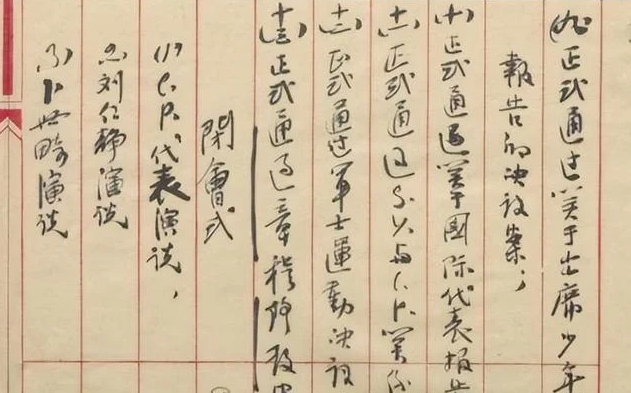 (九)正式通过关于出席少年
報告的决议案；
(十)正式通过关于國际代表报告
(十一)正式通过S.Y.与C.P.关係
(十二)正式通过军士運動决议
(十三)正式通过章程修改
閉會式
(1)C.P.代表演说，
(2)刘仁静演说
(3)卜世畸演说